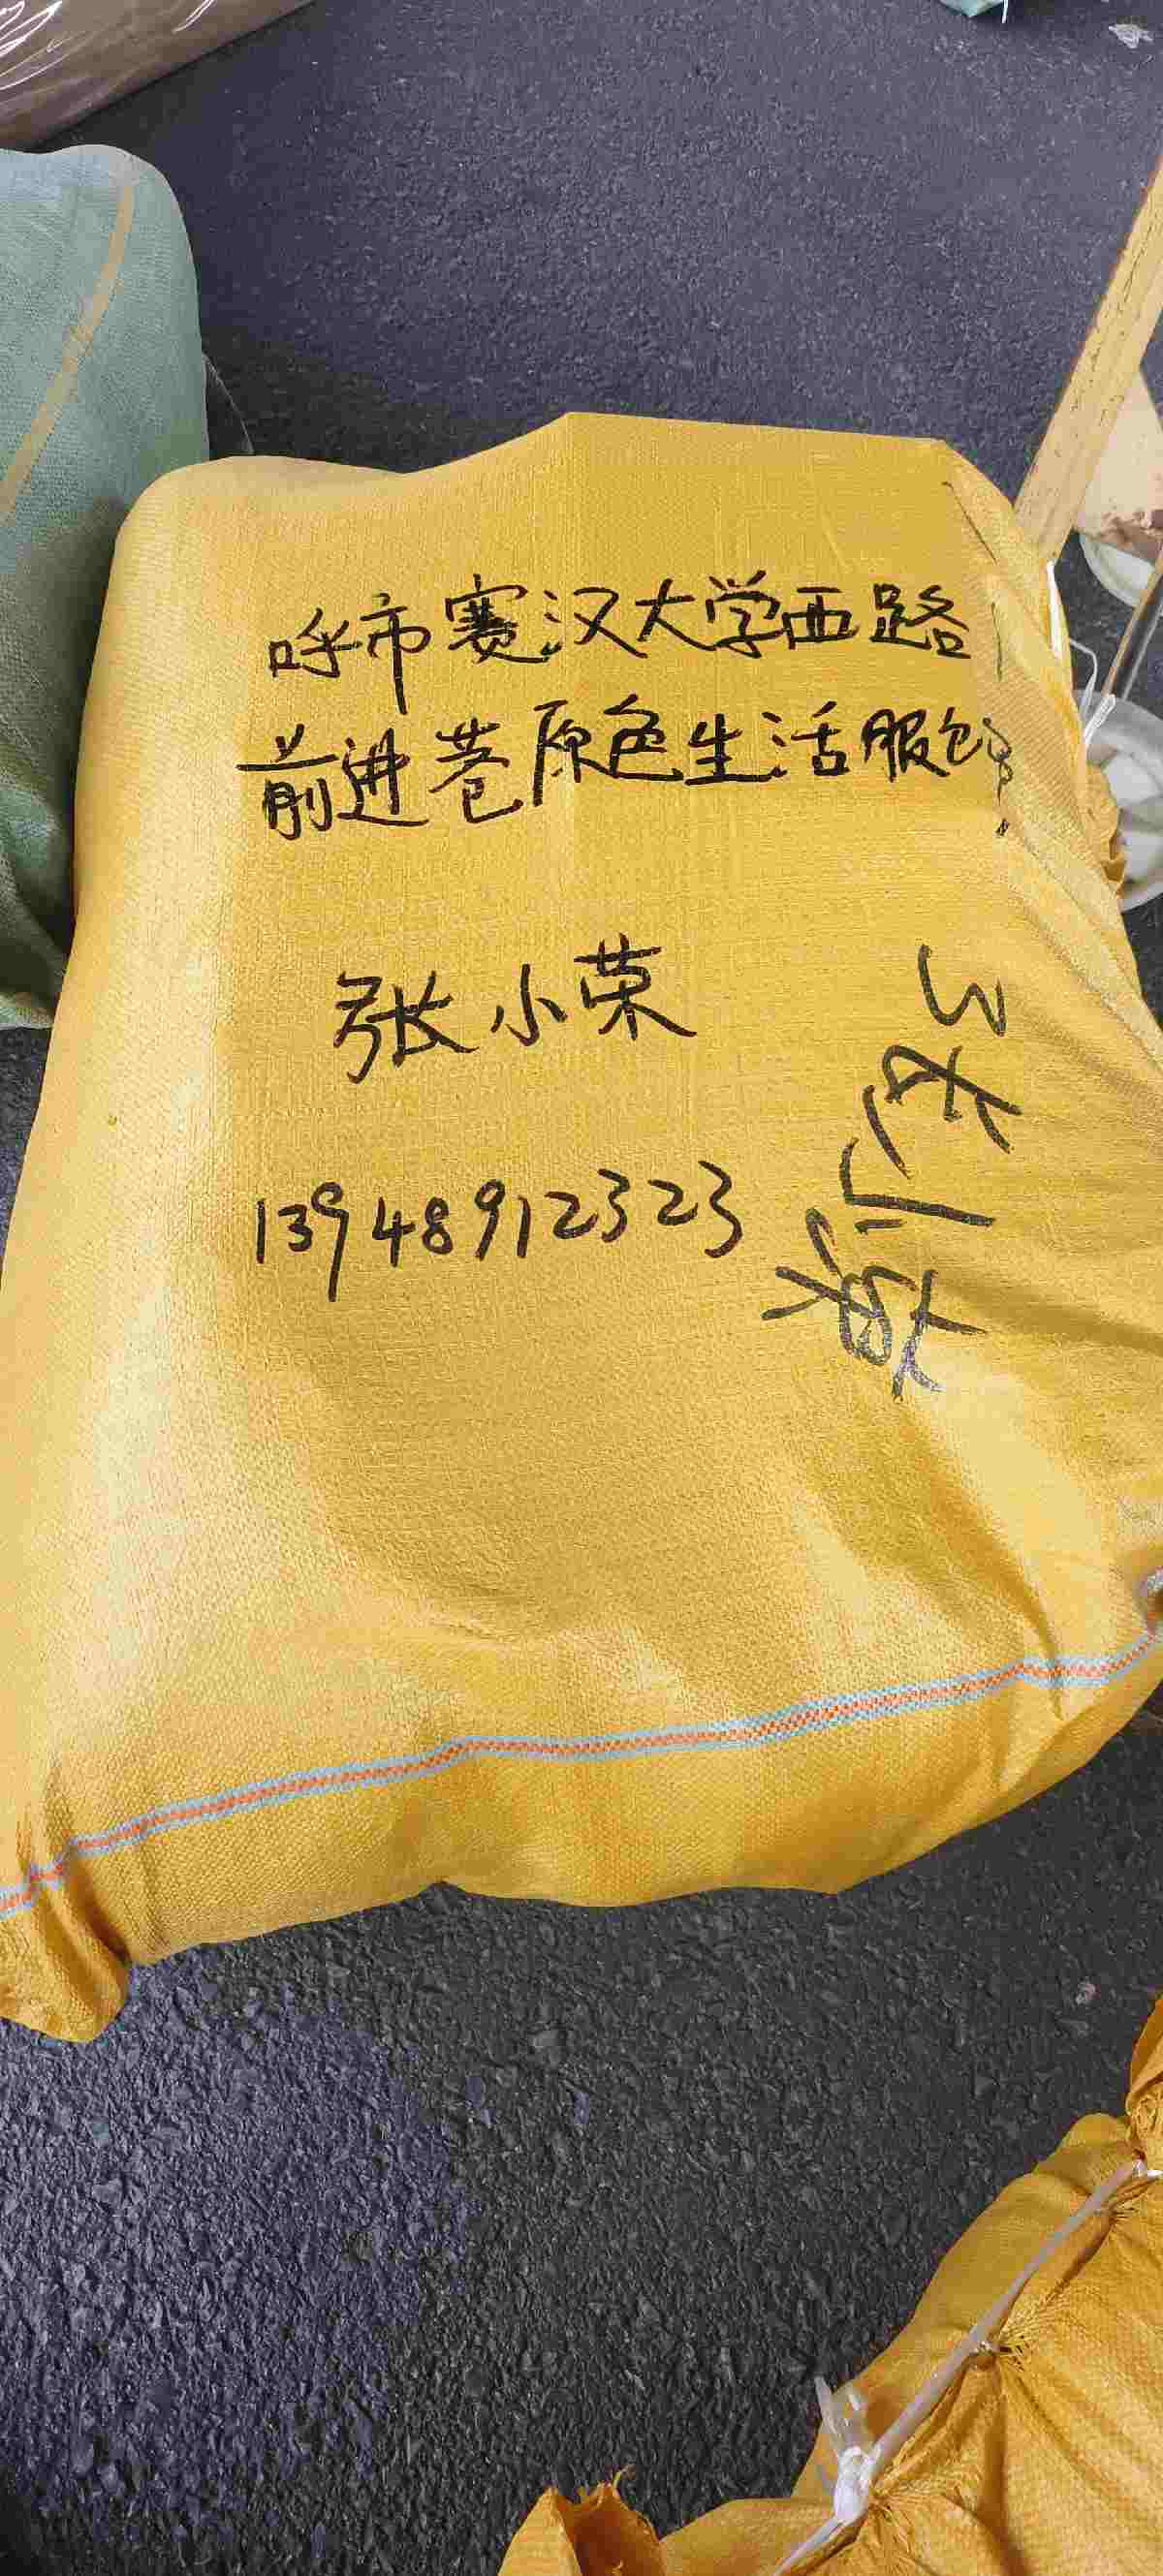 呼市赛汉大学西路
前进巷原色生活服饰
张小荣
13948912323